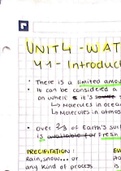 UNIT 4 - WAT
4.1 - Introduc
• There is a limited amou
• It can be considered a
on where it's
↳ Molecules in ocean
↳ Molecules in atmos
• Over 2/3 of Earth's su
is available for fresh
PRECIPITATION:
Rain, snow... or
any kind of process